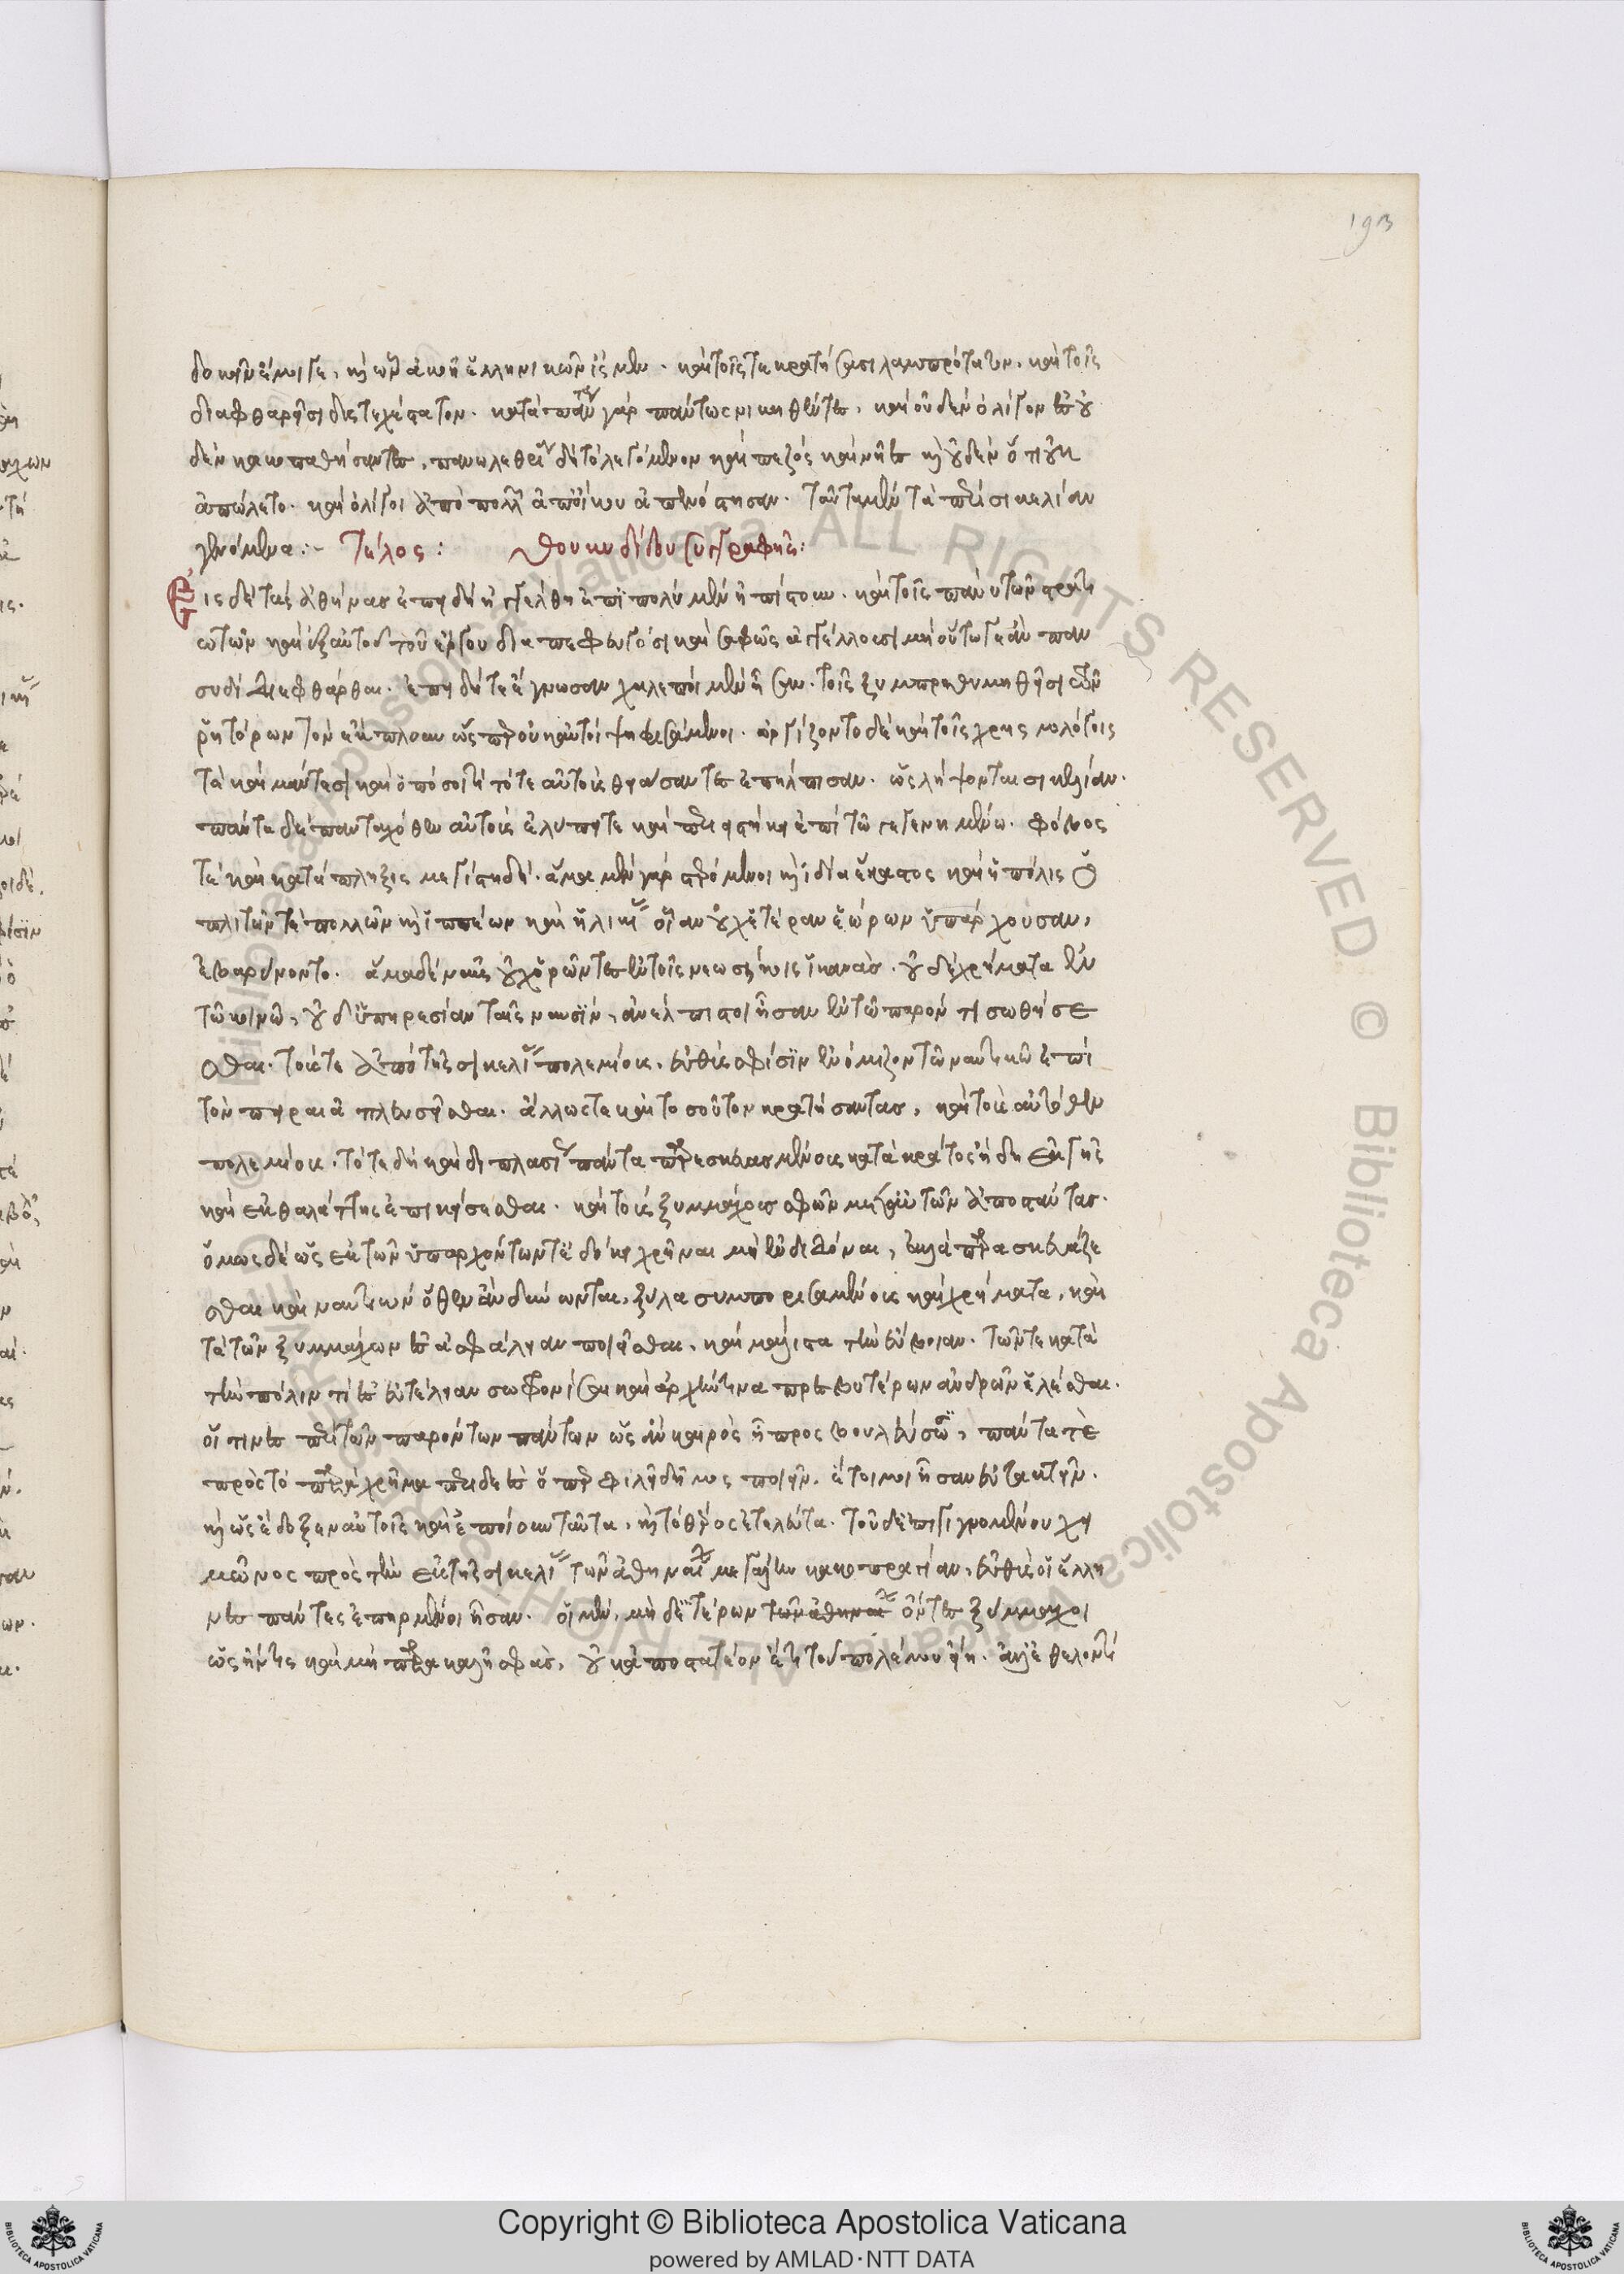 193
δοκεῖν ἔμοιγε, καὶ ὧν ἀκοῆ ἑλληνικῶν ἴσμεν. καὶ τοῖς τε κρατήσασι λαμπρότατον, καὶ τοῖς
διαφθαρεῖσι δυστυχέστατον. κατὰ πάντα γὰρ πάντως νικηθέντες, καὶ οὐδὲν ὀλίγον ἐς οὐ
δὲν κακοπαθήσαντες, πανωλεθρία δὴ τὸ λεγόμενον καὶ πεζὸς καὶ νῆες καὶ οὐδὲν ὅτι οὐκ
ἀπώλετο. καὶ ὀλίγοι ἀπὸ πολλῶν ἐπ' οἴκου ἀπενόστησαν. ταῦτα μὲν τὰ περὶ σικελίαν
γενόμενα:- Τέλος: Θουκυδίδου συγγραφῆς:
Ἐς δὲ τὰς ἀθήνας ἐπειδὴ ἠγγέλθη ἐπὶ πολὺ μὲν ἠπίστουν. καὶ τοῖς πάνυ τῶν στρατι
ωτῶν καὶ ἐξ αὐτοῦ τοῦ ἔργου διαπεφευγόσι καὶ σαφῶς ἀγγέλλουσι μὴ οὕτω γε ἂν παν
συδὶ διεφθάρθαι. ἐπειδή τε ἔγνωσαν χαλεποὶ μὲν ἦσαν τοῖς ξυμπροθυμηθεῖσι τῶν
ῥητόρων τὸν ἔκπλουν ὥσπερ οὐκ αὐτοὶ ψηφισάμενοι. ὠργίζοντο δὲ καὶ τοῖς χρησμολόγοις
τὲ καὶ μάντεσι καὶ ὁπόσοι τί τότε αὐτοὺς θειάσαντες ἐπήλπισαν. ὡς λήψονται σικελίαν.
πάντα δὲ πανταχόθεν αὐτοὺς ἐλύπει τε καὶ περιειστήκει ἐπὶ τῶ γεγενημένω. φόβος
τὲ καὶ κατάπληξις μεγίστη δή. ἅμα μὲν γὰρ στερόμενοι καὶ ἰδία ἕκαστος καὶ ἡ πόλις ὁ
πλιτῶν τὲ πολλῶν καὶ ἱππέων καὶ ἡλικίας οἵαν οὐχ ἑτέραν ἑώρων ὑπάρχουσαν,
ἐβαρύνοντο. ἅμα δὲ ναῦς οὐχ ὁρῶντες ἐν τοῖς νεωσοίκοις ἱκανὰς. οὐδὲ χρήματα ἐν
τῶ κοινῶ, οὐδ' ὑπηρεσίαν ταῖς ναυσὶν, ἀνέλπιστοι ἦσαν ἐν τῶ παρόντι σωθήσε
σθαι. τούς τε ἀπὸ τῆς σικελίας πολεμίους, εὐθὺς σφίσιν ἐνόμιζον τῶ ναυτικῶ ἐπὶ
τὸν πειραιᾶ πλευσεῖσθαι. ἄλλως τε καὶ τοσοῦτον κρατήσαντας, καὶ τοὺς αὐτόθεν
πολεμίους. τότε δὴ καὶ διπλασίως πάντα παρεσκευασμένους κατὰ κράτος ἤδη ἐκ γῆς
καὶ ἐκ θαλάττης ἐπικείσεσθαι. καὶ τοὺς ξυμμάχους σφῶν μετ' αὐτῶν ἀποστάντας.
ὅμως δὲ ὡς ἐκ τῶν ὑπαρχόντων τὲ ἐδόκει χρῆναι μὴ ἐνδιδόναι, ἀλλὰ παρασκευάζε
σθαι καὶ ναυτικὸν ὅθεν ἂν δύνωνται, ξύλα συμπορισαμένους καὶ χρήματα, καὶ
τὰ τῶν ξυμμάχων ἐς ἀσφάλειαν ποιεῖσθαι, καὶ μάλιστα τὴν εὔβοιαν. τῶν τε κατὰ
τὴν πόλιν τὶ ἐς εὐτέλειαν σωφρονίσαι καὶ ἀρχήν τινα πρεσβυτέρων ἀνδρῶν ἑλέσθαι.
οἵτινες περὶ τῶν παρόντων πάντων ὡς ἂν καιρὸς ἦ προβουλεύσωσι, πάντα τὲ
πρὸς τὸ παραχρῆμα περιδεὲς ὅπερ φιλεῖ δῆμος ποιεῖν. ἕτοιμοι ἦσαν εὐτακτεῖν.
καὶ ὡς ἔδοξεν αὐτοῖς καὶ ἐποίουν ταῦτα. καὶ τὸ θέρος ἐτελεύτα. τοῦ δ' ἐπιγιγνομένου χει
μῶνος πρὸς τὴν ἐκ τῆς σικελίας τῶν ἀθηναίων μεγάλην κακοπραγίαν, εὐθὺς οἱ ἕλλη
νες πάντες ἐπηρμένοι ἦσαν. οἱ μὲν, μηδετέρων τῶν ἀθηναίων ὄντες ξύμμαχοι
ὡς ἤν τις καὶ μὴ παρακαλῆ σφᾶς, οὐκ ἀποστατέον ἔτι τοῦ πολέμου εἴη. ἀλλ' ἐθελοντὶ